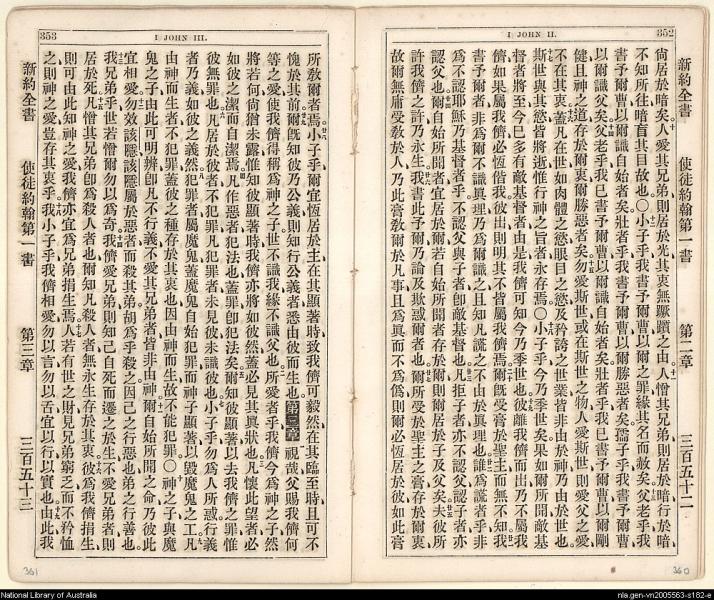 352
I JOHN II.
新約全書 使徒約翰第一書 第二章 三百五十二
尙居於暗矣人愛其兄弟則居於光其衷無厭躓之由人憎其兄弟則居於暗行於暗
不知所往暗盲其目故也○小子乎我書予爾曹以爾之罪緣其名而赦矣父老乎我
書予爾曹以爾識自始者矣壯者乎我書予爾曹以爾勝惡者矣孺子乎我書予爾曹
以爾識父矣父老乎我已書予爾曹以爾識自始者矣壯者乎我已書予爾曹以爾剛
健且神之道存於爾衷爾勝惡者矣勿愛斯世或在斯世之物人愛斯世則愛父之愛
不在其衷蓋凡在世如肉體之慾眼目之慾及矜誇之世業皆非由於神乃由於世也
斯世與其慾皆將逝惟行神之旨者永存焉○小子乎今乃季世矣果如爾所聞敵基
督者將至今已多有敵基督者由是我儕可知今乃季世也彼離我儕而出乃不屬我
儕如果屬我儕必恆偕我彼出則明其不皆屬我儕焉爾旣受膏於聖主而無不知我
書予爾者非爲爾不識眞理乃爲爾識之且知凡謊之不由於眞理也誰爲謊者非
爲不認耶穌乃基督者乎不認父與子者卽敵基督也凡拒子者亦不認父認子者亦
認父也爾自始所聞者宜居於爾若自始所聞者存於爾則爾居於子及父矣夫彼所
許我儕之許乃永生我書此予爾乃論及欺惑爾者也爾所受於聖主之膏存於爾衷
故爾無庸受敎於人乃此膏敎爾於凡事且爲眞而不爲僞則爾必恆居於彼如此膏
360
353
I JOHN III.
所敎爾者焉小子乎爾宜恆居於主在其顯著時致我儕可毅然在其臨至時且可不
愧於其前爾旣知彼乃公義則知行公義者悉由彼而生也第三章視哉父賜我儕何
等之愛使我儕得稱爲神之子世不識我緣不識父也所愛者乎我儕今爲神之子然
將若何尙猶未露惟知彼顯著時我儕亦將如彼然蓋必見其眞狀也凡懷此望者必
如彼之潔而自潔焉凡作惡者犯法也蓋罪卽犯法矣爾知彼顯著以去我儕之罪惟
彼無罪也凡居於彼者不犯罪凡犯罪者未見彼未識彼也小子乎勿爲人所惑行義
者乃義如彼之義然犯罪者屬魔鬼蓋魔鬼自始犯罪而神子顯著以毀魔鬼之工凡
由神而生者不犯罪蓋彼之種存於其衷也因由神而生故不能犯罪○神之子與魔
鬼之子由此可明辨卽凡不行義不愛其兄弟者皆非由神爾自始所聞之命乃彼此
宜相愛勿效該隱該隱屬於惡者而殺其弟胡爲乎殺之因己之行惡也弟之行善也
我兄弟乎世若憎爾勿以爲奇我儕愛兄弟則知己自死而遷之於生不愛兄弟者則
居於死凡憎其兄弟卽爲殺人者也爾知凡殺人者無永生存於其衷彼爲我儕捐生
則可由此知神之愛我儕亦宜爲兄弟捐生焉人若有世之財見兄弟窮乏而不矜恤
之則神之愛豈存其衷乎我小子乎我儕相愛勿以言勿以舌宜以行以實也由此我
新約全書 使徒約翰第一書 第三章 三百五十三
361
National Library of Australia
nla.gen-vn2005563-s182-e